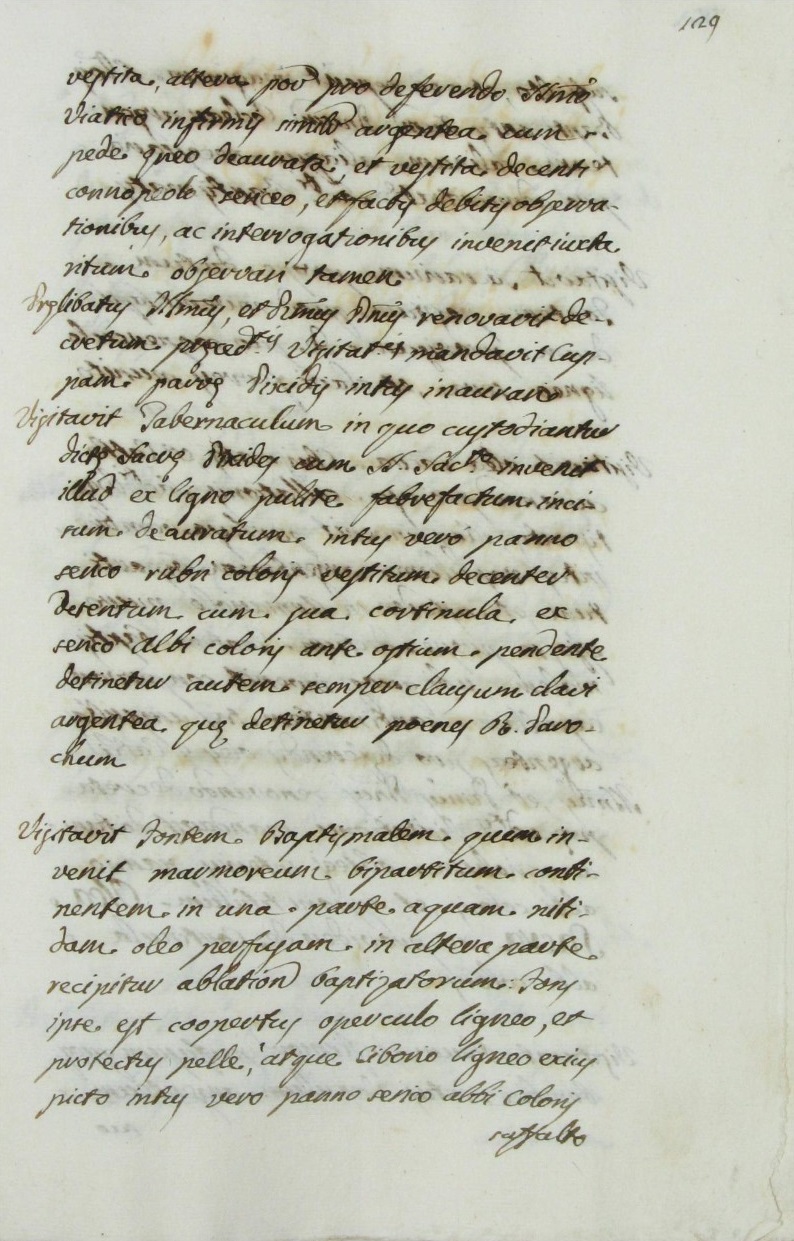 129
vestita, altera por̃ pro deferendo Smõ
Viatico infirmis similr argentea cum
pede ęneo deaurata, et vestita decenti
connopeolo sericeo, et factis debitis observa-
tionibus, ac interrogationibus invenit iuxta
ritum observari tamen
Pręlibatus Illmũs, et Rmũs Dnũs renovavit de-
cretum pręced.tis Visitat.is mandavit Cup-
pam parvę Pixidis intus inaurari
Visitavit Tabernaculum in quo custodiantur
dictę Sacrę Pixides cum S. Sac.to invenit
illud ex ligno pulite fabrefactum inci-
sum deauratum intus vero panno
serico rubri coloris vestitum decenter
detentum cum sua cortinula ex
serico albi coloris ante ostium pendente
detinetur autem semper clausum clavi
argentea quę detinetur poenes R. Paro-
chum
Visitavit Fontem Baptismalem quem in-
venit marmoreum bipartitum conti-
nentem in una parte aquam niti-
dam oleo perfusam in altera parte
recipitur ablation baptizatorum: Fons
ipse est coopertus operculo ligneo, et
protectus pelle, atque Ciborio ligneo exius
picto intus vero panno serico albi Coloris